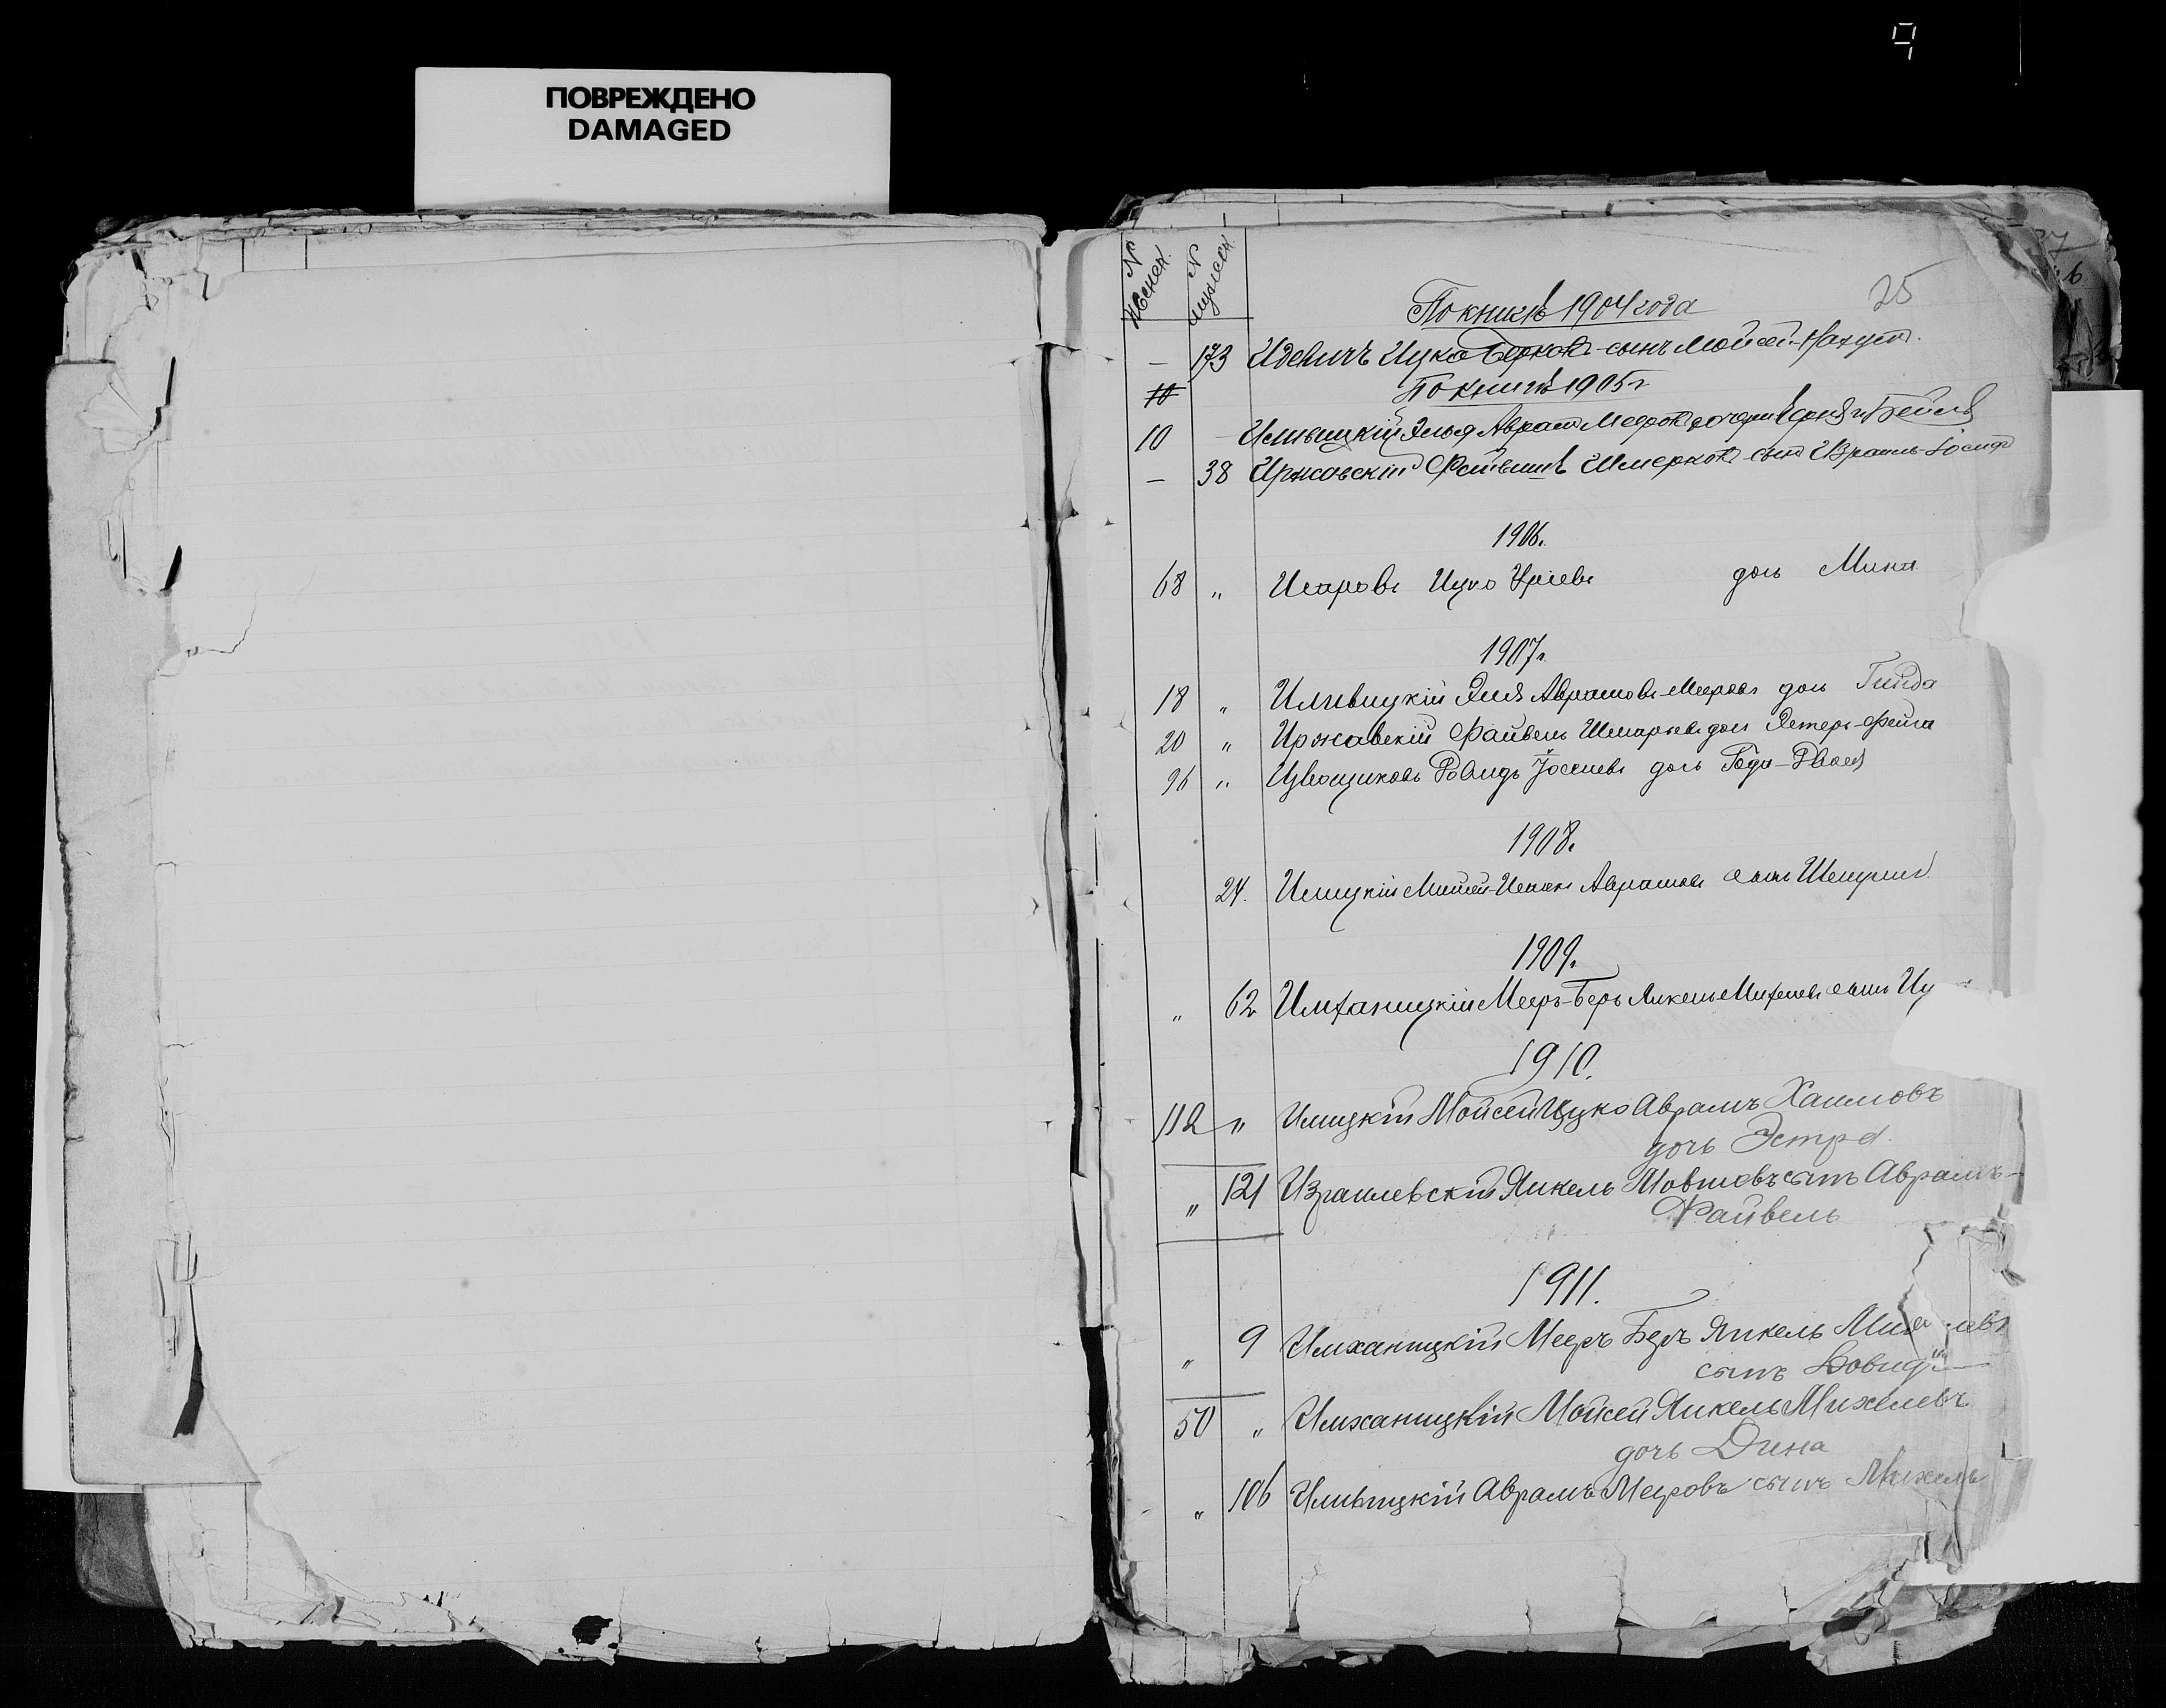 ПОВРЕЖДЕНО
DAMAGED
25
№ женск. № мужеск.
По книгѣ 1904 года
— 173 Идевичъ Ицко Берковъ сынъ Мойсей-Нахумъ.
10 По книгѣ 1905 г
10 — Ильвицкій Элья Аврам Мееров дочери и Бейля
— 38 Иржавскій Файвишъ Шмерковъ сынъ Израиль-Іосифъ
1906.
68 „ Исаровъ Ицко Уріевъ дочь Мина
1907 г.
18 „ Иливицкій Эля Аврамовъ-Мееровъ дочь Гинда
20 „ Иржавскій Файвель Шмарьевъ дочь Эстеръ-Фейга
96 „ Извощиковъ Довидъ Іосселевъ дочь Года-Двося
1908.
24. Илицкій Мойсей-Ицко Аврамовъ сынъ
1909.
„ 62 Имханицкій Мееръ-Беръ Янкель Михелевъ сынъ Иц
1910.
112 „ Илицкій Мойсей Ицко Аврамъ Хаимовъ
дочь Эстра.
„ 121 Израилевскій Янкель Мовшовъ сынъ Аврамъ-
Файвель
1911.
„ 9 Имханицкій Мееръ Беръ Янкель Михелевъ
сынъ Довидъ
50 „ Имханицкій Мойсей Янкель Михелевъ
дочь Дина
„ 106 Ильвицкій Аврамъ Мееровъ сынъ Михель